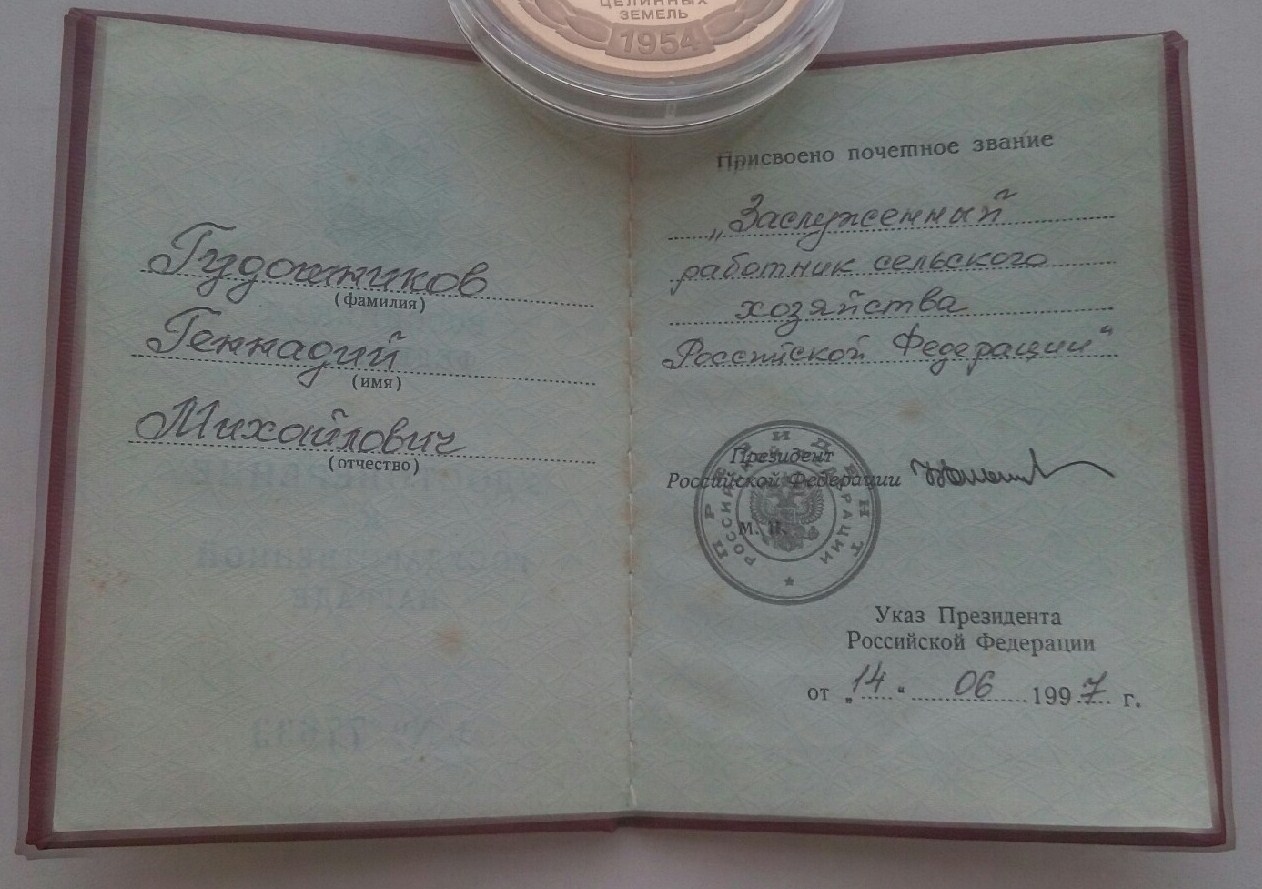 ЦЕЛИННЫХ
ЗЕМЕЛЬ
1954
Гудошников
(фамилия)
Геннадий
(имя)
Михайлович
(отчество)
Присвоено почетное звание
„Заслуженный
работник сельского
хозяйства
Российской Федерации“
Президент
Российской Федерации
М. П.
ПРЕЗИДЕНТ
РОССИЙСКОЙ ФЕДЕРАЦИИ
Указ Президента
Российской Федерации
от „14“ 06 1997 г.